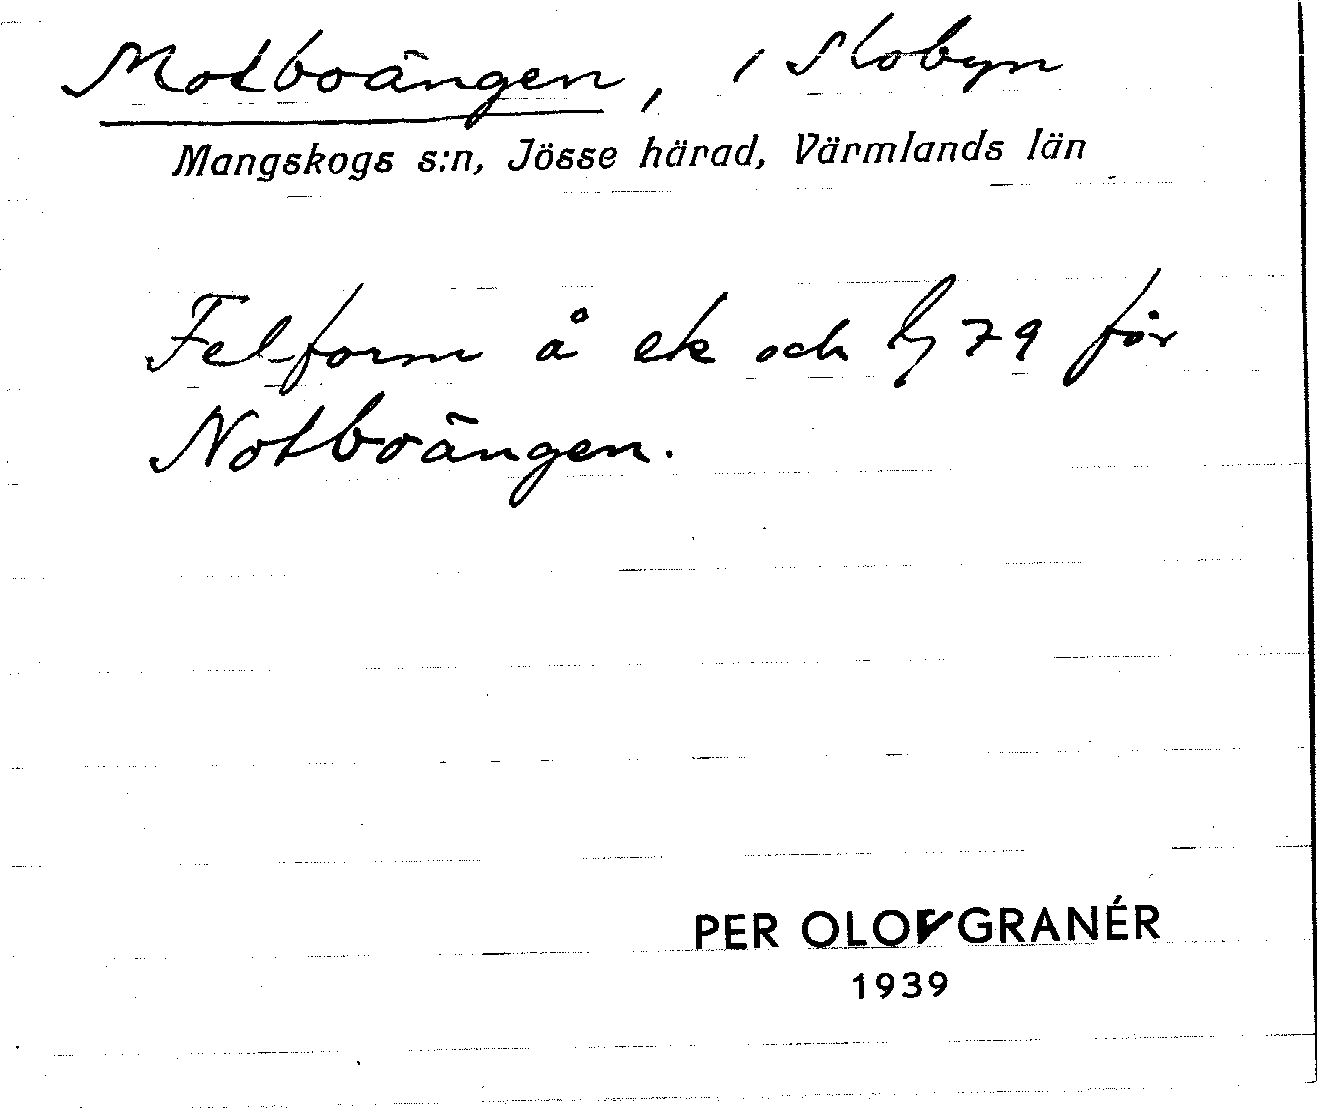 Motboängen, i Slobyn
Mangskogs s:n, Jösse härad, Värmlands län
Felform å ek och Lj 79 för
Notboängen.
PER OLOF GRANÉR
1939